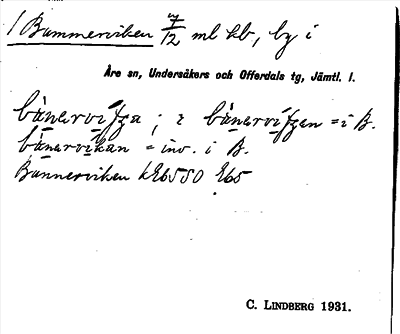 1 Bammerviken 7/12 ml kb, by i
Åre sn, Undersåkers och Offerdals tg, Jämtl. l.
bànervífga ; i bànervífgen = i B.
bànarvikan = inv. i B.
Bannerviken kE6550 E65
C. LINDBERG 1931.